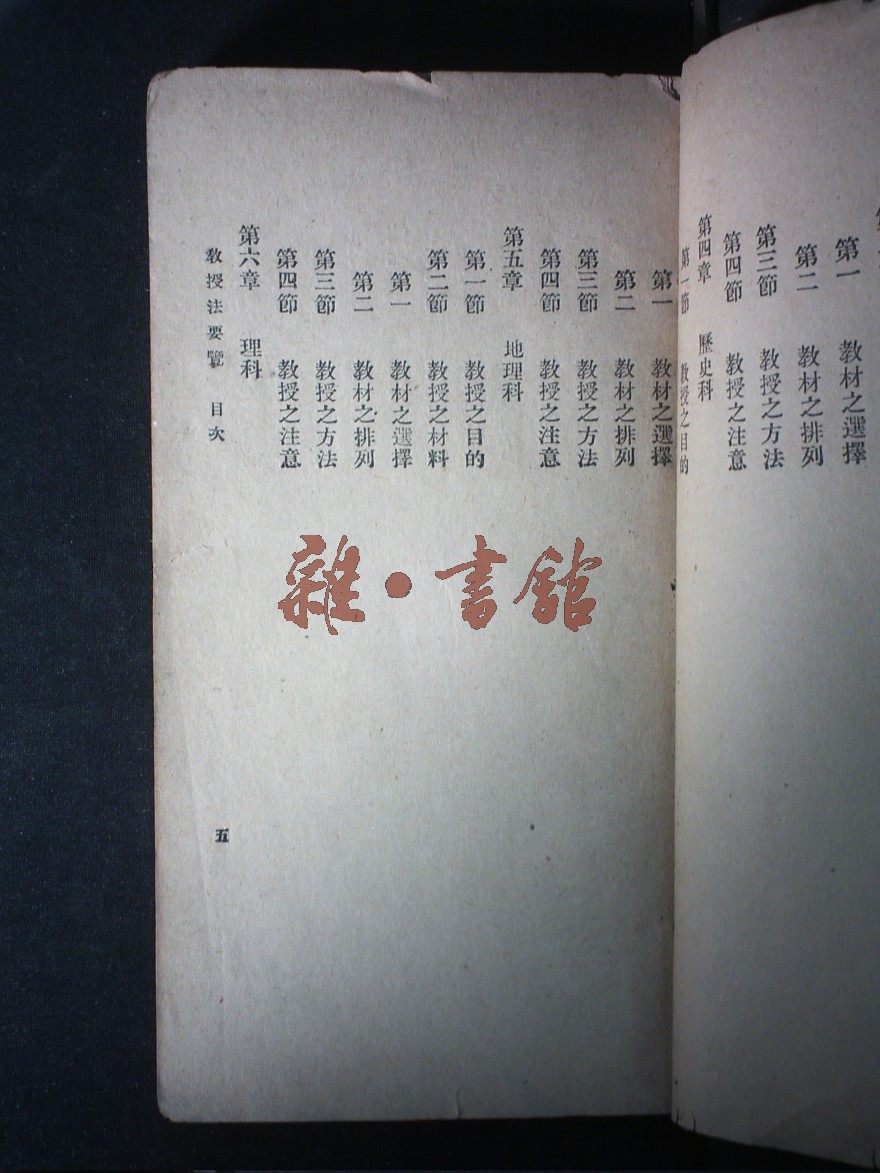 第一 教材之選擇
第二 教材之排列
第三節 教授之方法
第四節 教授之注意
第四章 歷史科
第一節 教授之目的
第一 教材之選擇
第二 教材之排列
第三節 教授之方法
第四節 教授之注意
第五章 地理科
第一節 教授之目的
第二節 教授之材料
第一 教材之選擇
第二 教材之排列
第三節 教授之方法
第四節 教授之注意
第六章 理科
教授法要覽 目次
五
雜·書館